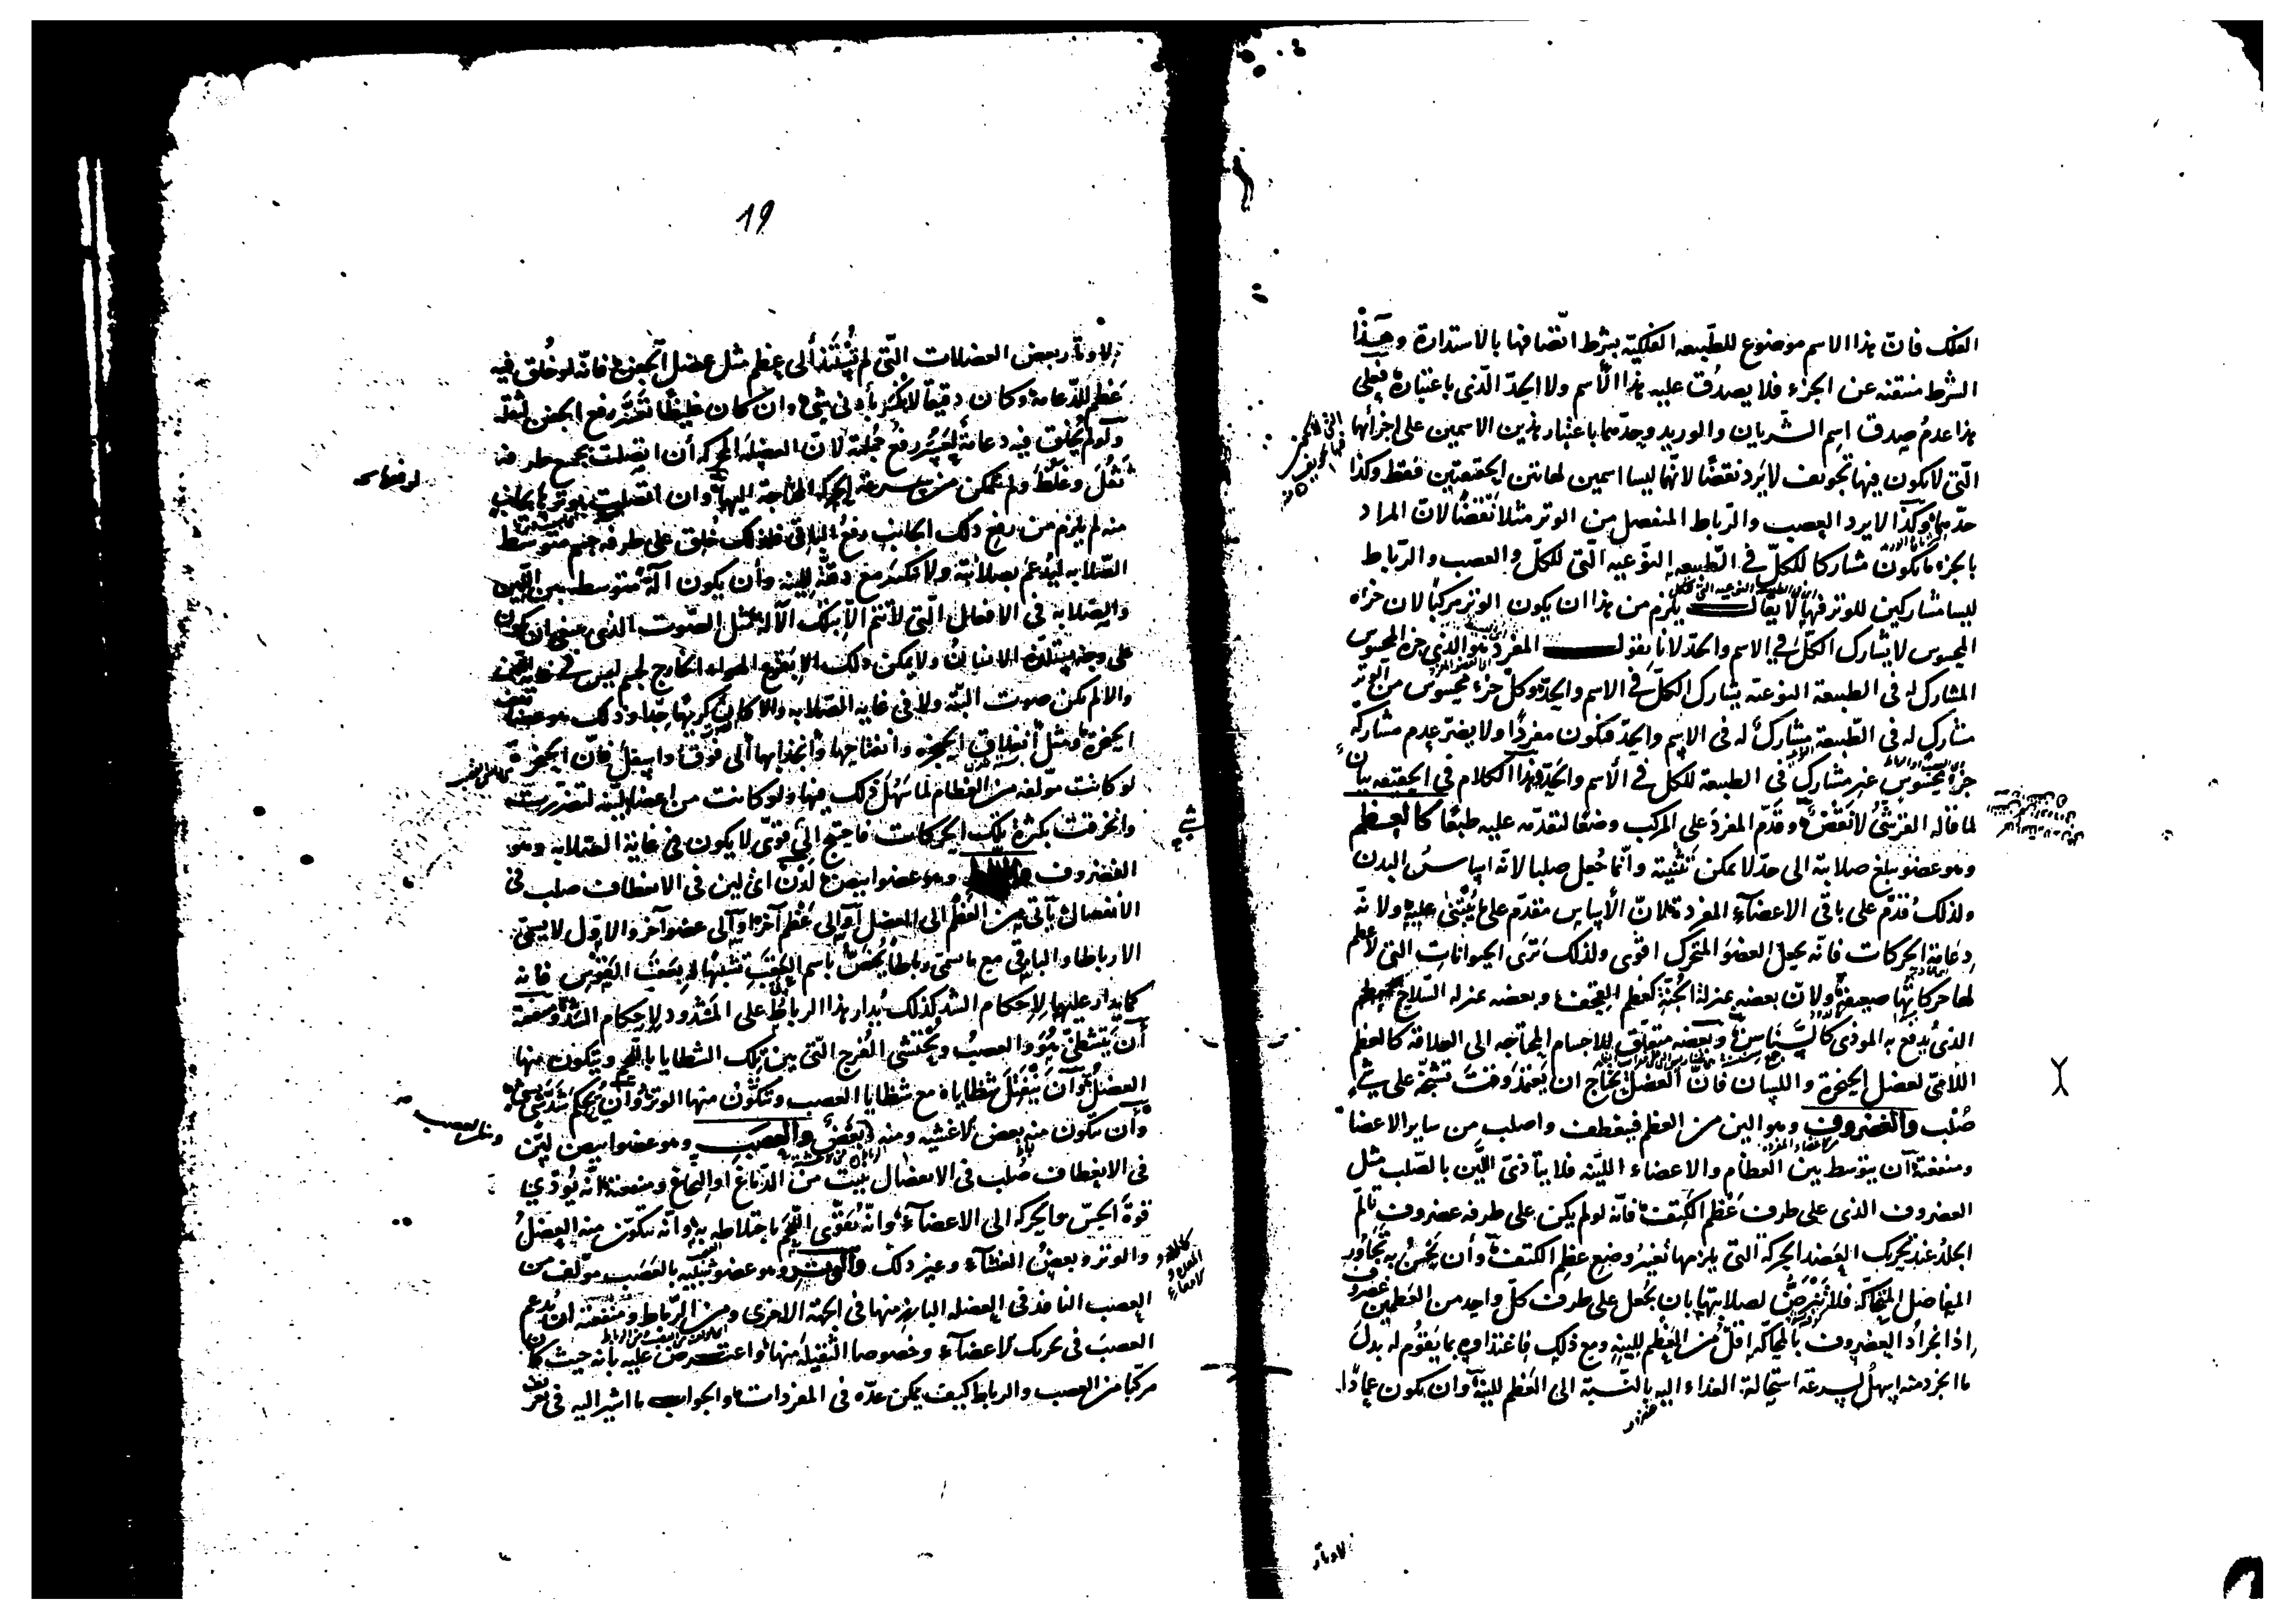 الفلك فان هذا الاسم موضوع للطبيعه الفلكيّه بشرط اتّصافها بالاستدارة وهذا
الشرط منتفٍ عن الجزء فلا يصدُق عليه هذا الاسم ولا الحدّ الذى باعتباره فعلى
هذا عدمُ صدق اسم الشريان والوريد وحدّهما باعتبار هذين الاسمين على اجزائها
الّتى لا يكون فيها تجويف لا يَرد نقضًا لانهما ليسا اسمين لهاتين الحقيقتين فقط وكذا
حدّيهما وكذا لا يرد العصب والرّباط المنفصل من الوتر مثلا نقضًا لانّ المراد
بالجزء ما يكون مشاركا للكلّ فى الطّبيعه النّوعيه الّتى للكلّ والعصب والرّباط
ليسا مشاركين للوتر فيها لا يقال يلزم من هذا ان يكون الوتر مركبًا لان جزاه
المحسوس لا يشارك الكلّ فى الاسم والحدّ لانا نقول المفرد هو الذى جزه المحسوس
المشارك له فى الطبيعة النوعيّه يشارك الكلّ فى الاسم والحدّ وكلّ جزء محسوس من الوتر
مشارك له فى الطّبيعة مشارك له فى الاسم والحدّ فيكون مفردًا ولا يضرّ عدم مشاركه
جزء محسوس غير مشارك فى الطبيعة للكل فى الاسم والحدّ وهذا الكلام فى الحقيقه بيان
لما قاله القرشىُّ لا نقض وقدّم المفردَ على المركب وضعًا لتقدّمه عليه طبعًا كالعظم
وهو عضو يبلغ صلابتة الى حدّ لا يمكن تثنيته وانّما جُعل صلبا لانّه اساسُ البدن
ولذلك قُدّم على باقى الاعضآء المفردة لانّ الأساس مقدّم على ما يُبتَنى عليه ولانّه
دِعَامة الحركات فانّه يجعل العضوَ المتحرك اقوى ولذلك تَرَى الحيوانات التى لا عظم
لها حركاتها ضعيفة ولانّ بعضه بمنزلة الجُنّة كعظم القحف وبعضه بمنزله السلاح
الذى يُدفع به الموذى كالسَّنَاسِن وبعضه متعلّق للاجسام المحتاجه الى العلاقه كالعظم
اللامىّ لعضل الحنجرة واللسان فانّ العضل يحتاج ان يَعتمد وقت تشنجّه على شىء
صُلب والغضروف وهو الين من العظم فينعطف واصلب من ساير الاعضا
ومنفعته ان يتوسط بين العظام والاعضاء الليّنه فلا يتأذىّ اللّيّن بالصّلب مثل
الغضروف الذى على طرف عَظْم الكَتِف فانّه لو لم يكن على طرفه غضروف تالّم
الجلدُ عند تحريك العضد الحركة التى يلزمها تغيّرُ وضع عظم الكتف وأن يحسُنَ به تجاوُر
المفاصل المتحاكّه فلا تترضّض لصلابتها بان يُجعل على طرف كلّ واحد من العظمين غضروف
اذ انجرادُ الغضروف بالمحاكّه اقلّ من العظم للينه ومع ذلك فاغتذاوه بما يقوُم له بدلَ
ما انجرد منه اسهلُ لسرعة استحالة الغذاء اليه بالنّسبة الى العَظم للينه وان يكون عمادًا
لاوتار
19
لاوتار بعض العضلات الّتى لم تستند ألى عظم مثل عضل الجفن فانّه لو خُلق فيه
عَظم للدّعامة وكان دقيقًا لانكسر بأدنى شىء وان كان غليظًا تعذّر رفع الجفن لثقله
ولو لم يُخلق فيه دعامةٌ لعَسُر رفعُ جُملته لانّ العضله المحركه أن اتصلت بجميع طرفه
ثَقُلَ وغلُظ ولم تمكن من سرعة الحركة المحتاجة اليها وان اتصلت بوترها بجانب
منه لم يلزم من رفع ذلك الجانب رفعُ الباقى فلذلك خُلق على طرفه جسم متوسط
الصّلابه ليُدعَم بصلابته ولا ينكسر مع دقّته للينه وأن يكون آلة متوسطه بين اللّين
والصّلابه فى الافعال الّتى لا تتم الّا بتلك الآلة مثل الصّوت الذى ينبغى ان يكون
على وجه يستلذّه الانسان ولا يمكن ذلك الا بقرع الهواء الخارج لجسم ليس فى غايه اللين
والا لم يكن صوت البتّه ولا فى غايه الصّلابه والا كان كريهًا جدّا وذلك هو غضروف
الحنجرة ومثل انغلاق الحنجره وانفتاحها وانجذابها ألى فَوق او اسفل فانّ الحنجرة
لو كانت مؤلّفه من العظام لما سَهُل ذلك فيها ولو كانت من اعضاء ليّنه لتضرّرت
وانخرقت بكثرة تلك الحركات فاحتيج الى قوىّ لا يكون فى غاية الصّلابه وهو
الغضروف وهو عضو ابيض لَدْن اى لين فى الانعطاف صلب فى
الانفصال يأتى من العَظم الى العضل أو الى عَظْم آخر او الى عضو آخر والاوّل لا يسمّى
الا رباطا والباقى مع ما سمّى رباطا يُخصّ باسم العَقَب تشبيهًا له بعَقَب القوس فانه
كما يدار عليها لِاحكام الشد كذلك يُدار هذا الرباط على المشدود لِاحكام الشدّ ومنفعته
أن يَتشظّى هو والعصبُ ويُحتشى الفُرج الّتى بين تلك الشظايا باللّحم ويتكون منها
العضلُ وان يُفتَل شظاياه مع شظايا العصب ويتكوّن منها الوتر وان يحكم شدّ شىء
وأن يتكون منه بعض لاغشيه ومنه بعض والعصب وهو عضو ابيض ليّن
فى الانعطاف صُلب فى الانفصال ينبت من الدّماغ او النّخاع ومنفعته انّه يُؤدّي
قوة الحسّ والحركه الى الاعضآء وانّه يُقوّى اللّحم باختلاطه به وانّه يتكوّن منه العضلُ
والوتر وبعض الغشآء وغير ذلك والوتر وهو عضو شبيه بالعَصَب مؤلّف من
العصب النافذ فى العضله البارز منها فى الجهة الاخرى ومن الرّباط ومنفعته ان يُدعم
العصبَ فى تحريك لاعضآء وخصوصا الثقيلة منها واعترض عليه بأنه حيث كان
مركبًا من العصب والرباط كيف يمكن عدّه فى المفردات والجواب ما اشير اليه فى تعريف